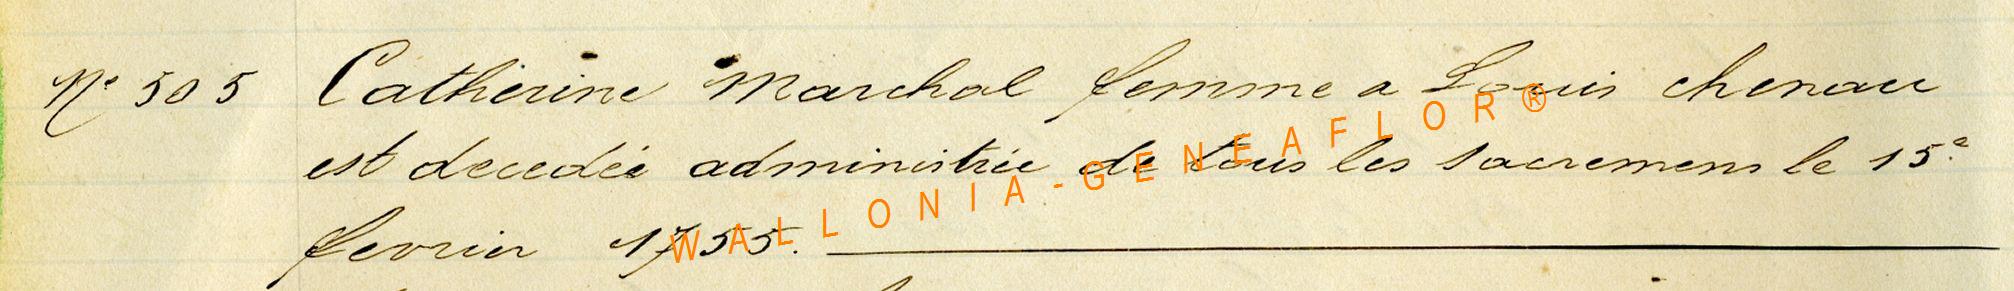 N° 505 Catherine Marchal femme a Louis chenau
est decedée administrée de tous les sacremens le 15.e
fevrier 1755.
WALLONIA-GENEAFLOR®